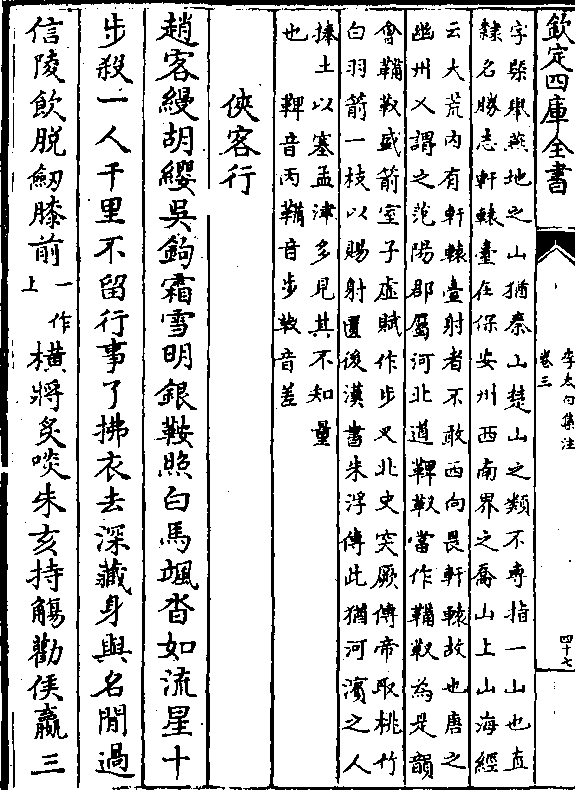 欽定四庫全書
李太白集注
卷三
四十七
字槩舉燕地之山猶秦山楚山之類不專指一山也直
隸名勝志軒轅臺在保安州西南界之喬山上山海經
云大荒內有軒轅臺射者不敢西向畏軒轅故也唐之
幽州又謂之范陽郡屬河北道鞞靫當作鞴靫為是韻
會鞴靫盛箭室子虛賦作步叉北史突厥傳帝取桃竹
白羽箭一枝以賜射匱後漢書朱浮傳此猶河濱之人
捧土以塞孟津多見其不知量
也 鞞音丙鞴音步靫音差
俠客行
趙客縵胡纓吳鉤霜雪明銀鞍照白馬颯沓如流星十
步殺一人千里不留行事了拂衣去深藏身與名閒過
信陵飲脫劒膝前一作上橫將炙啖朱亥持觴勸侯嬴三